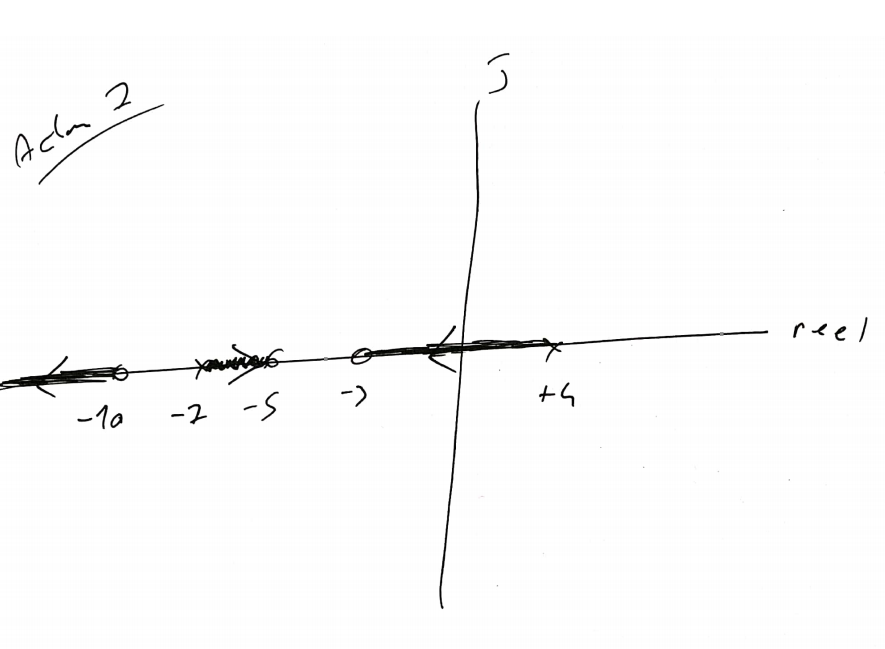 Adım 2
J
reel
-10 -7 -5 -3 +4